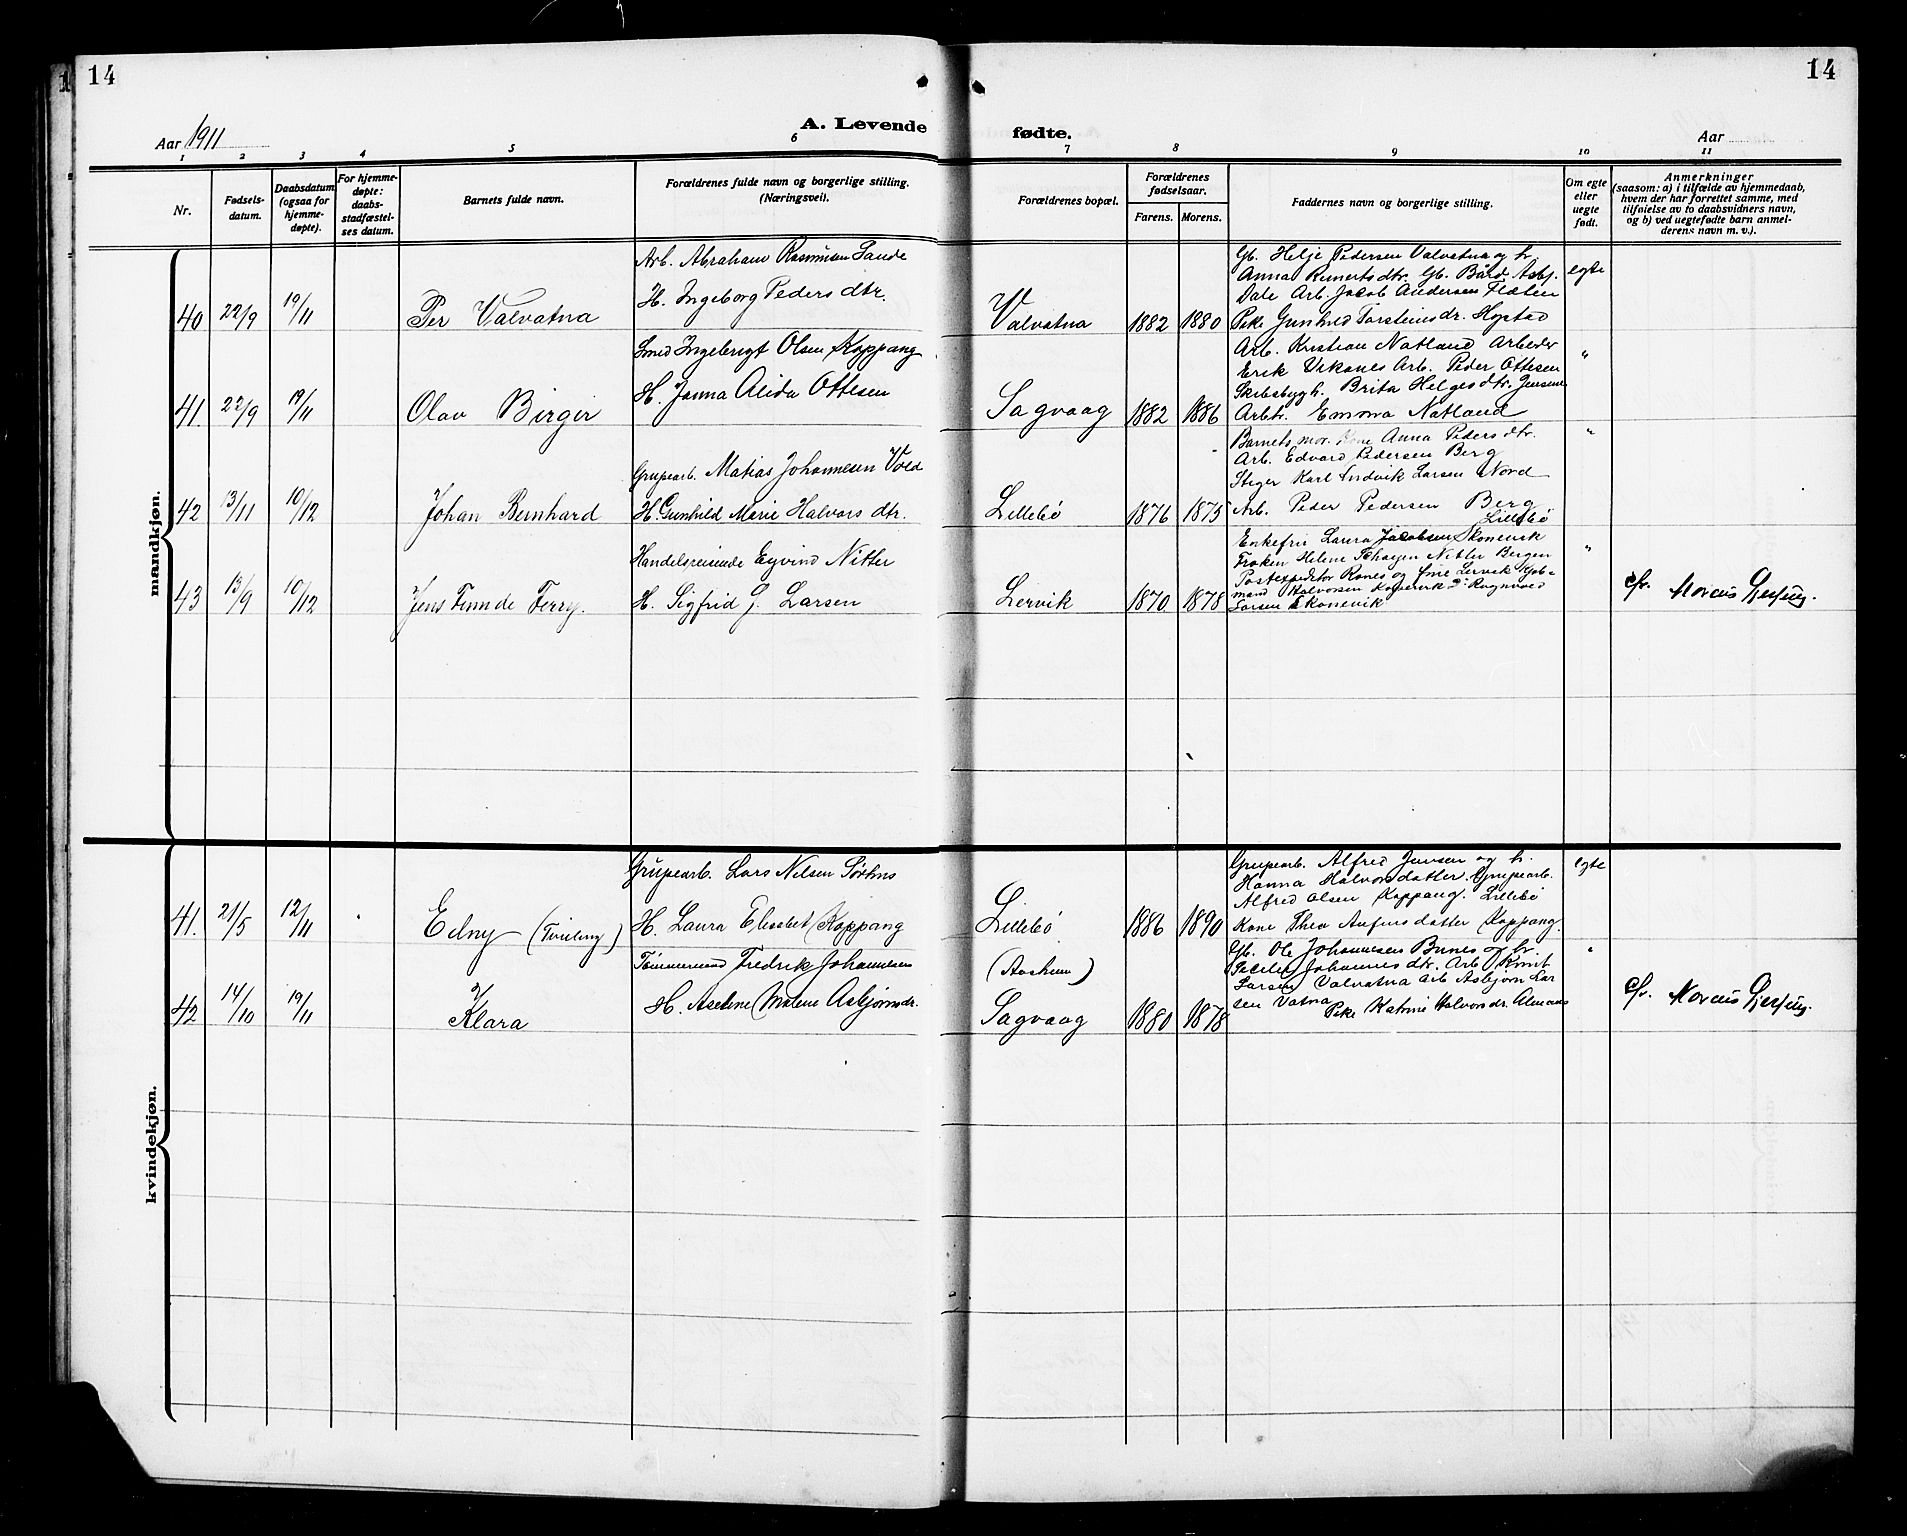 14
14
Aar 1911
A. Levende
fødte.
Aar
1 2 3 4 5 6 7 8 9 10 11
Nr.
Fødsels-
datum.
Daabsdatum
(ogsaa for
hjemme-
døpte).
For hjemme-
døpte:
daabs-
stadfæstel-
ses datum.
Barnets fulde navn.
Forældrenes fulde navn og borgerlige stilling.
(Næringsvei).
Forældrenes bopæl.
Forældrenes
fødselsaar.
Farens. Morens.
Faddernes navn og borgerlige stilling.
Om egte
eller
uegte
født.
Anmerkninger
(saasom: a) i tilfælde av hjemmedaab,
hvem der har forrettet samme, med
tilføielse av to daabsvidners navn,
og b) ved uegtefødte barn anmel-
derens navn m. v.).
mandkjøn.
40 22/9 19/11 Per Valvatna
Arb. Abraham Rasmusen Sande
H. Ingeborg Peders dtr.
Valvatna 1882 1880
Gb. Helje Pedersen Valvatna og h.
Anna Runerts dtr. Gb. Bård Asbj.
Dale Arb. Jacob Andersen Flaten
Pike Gunhild Torsteins dr. Hystad
egte
41. 22/9 19/11 Olav Birger
Smed Ingebrigt Olsen Koppang
H. Janna Alida Ottesen
Sagvaag 1882 1886
Arb. Kristian Natland Arbeider
Erik Vikanes Arb. Peder Ottesen
Skibsbyg h. Brita Helges dtr. Jensen
Arbtr. Emma Natland
"
42 13/11 10/12 Johan Bernhard
Grupearb. Matias Johannesen Vold
H. Gunhild Marie Halvors dtr.
Lillebø 1876 1875
Barnets mor. Kone Anna Peders dtr.
Arb. Edvard Pedersen Berg
Stiger Karl Ludvik Larsen Nord
Arb. Peder Pedersen Berg
Lillebø
"
43 13/9 10/12 Jens Terry.
Handelsreisende Eyvind Nitter
H. Sigfrid G. Larsen
Lervik 1870. 1878
Enkefru Laura Jacobsen Skonevik
Frøken Helene Nitter Bergen
Postexpeditør Rones og frue Lervik Kjøb-
mand Halvorsen Kopervik Rognvald
Larsen Skonevik
"
cfr. Marcus Gjessing.
kvindekjøn.
41. 21/5 12/11 Edny (Tvilling)
Grupearb. Lars Nilsen Sørhus
H. Laura Elisabet Koppang
Lillebø 1886 1890
(Aasheim)
Grupearb. Alfred Jensen og h.
Hanna Halvorsdatter. Grupearb.
Alfred Olsen Koppang. Lillebø
Kone Thea Anfinsdatter Koppang.
egte
42 14/10 19/11 Klara
Tømmermand Fredrik Johannesen
H. Malene Asbjørnsdr.
Sagvaag 1880 1878
Gb. Ole Johannesen Bunes og h.
Secilie Johannes dtr. Arb. Knut
Larsen Valvatna Arb Asbjørn Lar
sen Vatna Pike Katrine Halvorsdr. Almaas
"
cfr. Marcus Gjessing.